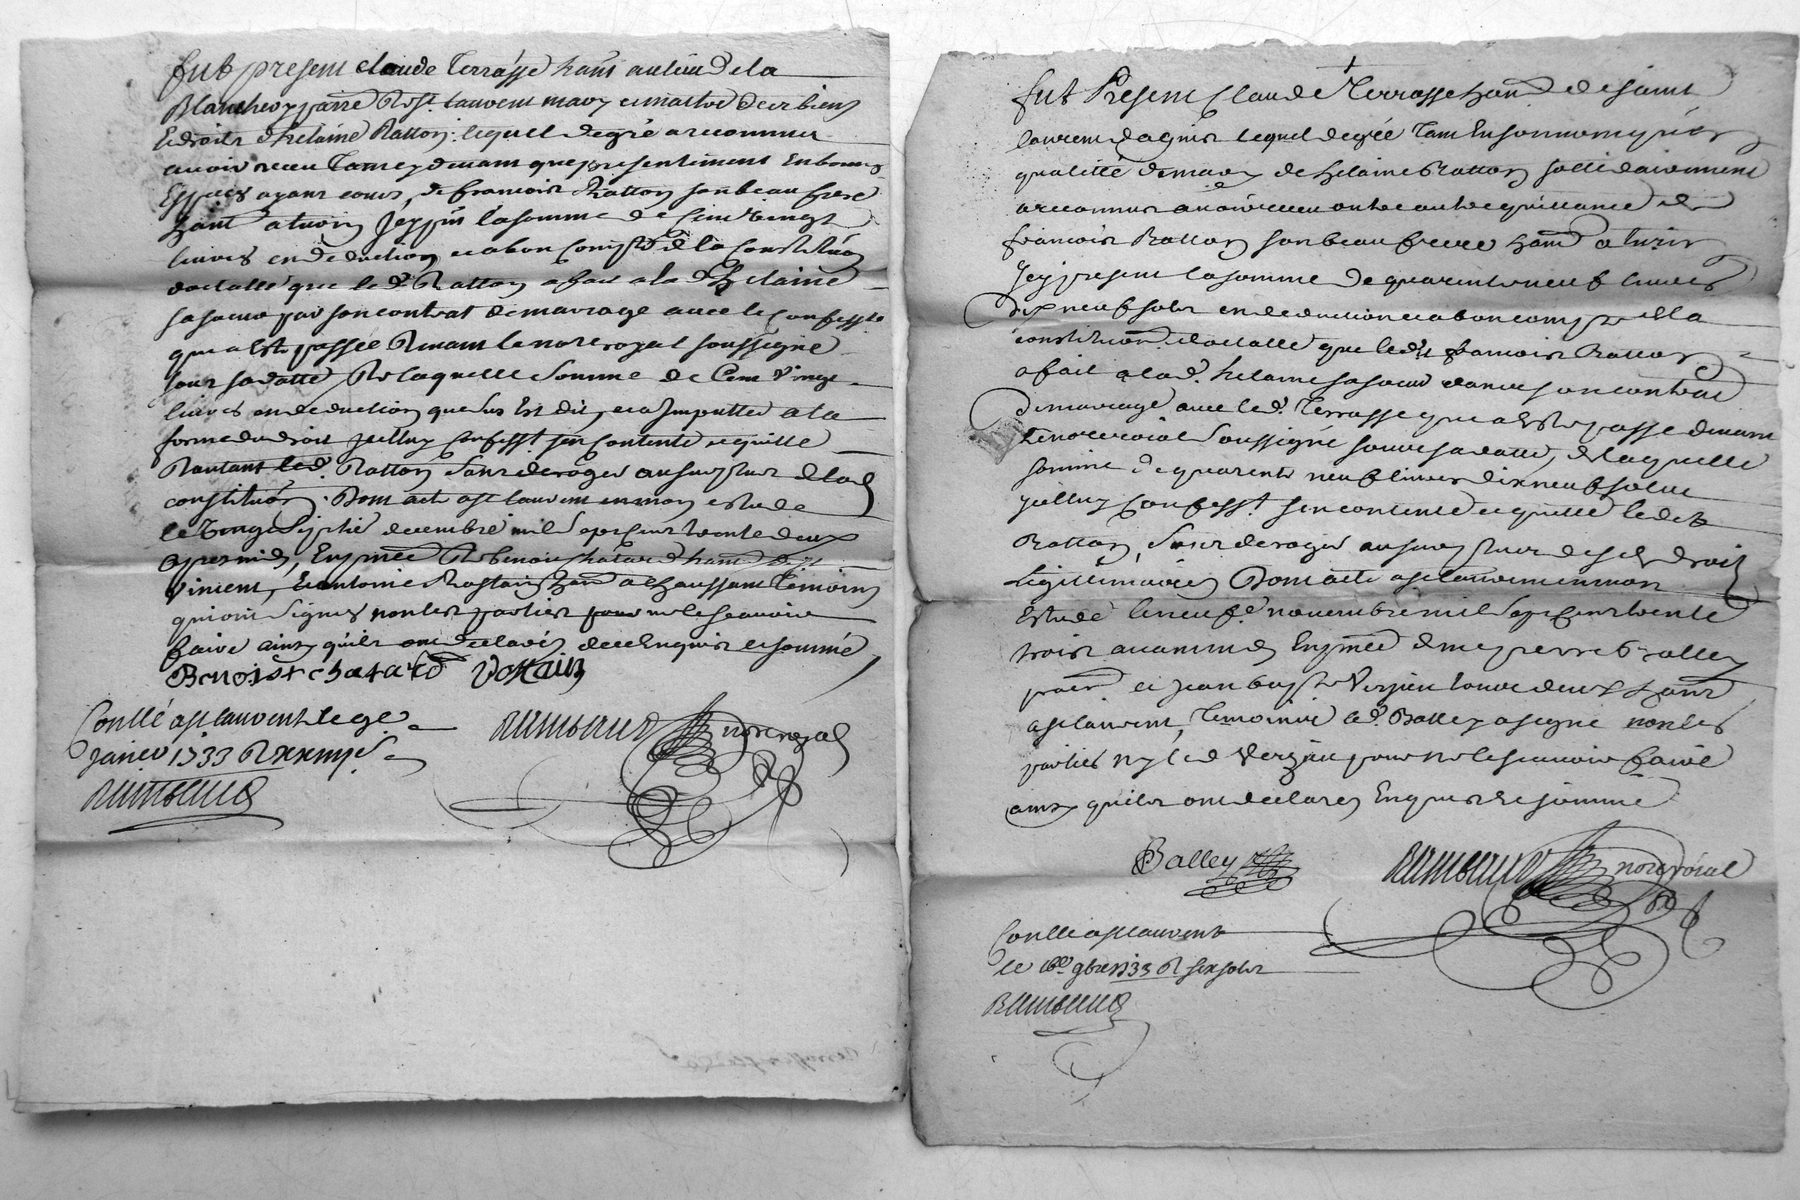 fut present claude Terrasse hant au lieu de la
Blancherey parre St laurent mary et maitre des biens
et droits d'helaine Ratton lequel de gré a reconnu
avoir receu tant cy devant que presentement en bonnes
Especes ayant cours, de francois Ratton son beau frere
hant a luoin jcy pnt la somme de Cent vingt
livres en deduction et a bon compte de la Constituon
dotalle que led Ratton a fait a la d helaine
sa soeur par son contrat de mariage avec le confesst
qui a este passée devant le notre royal soussigné
sous sa datte de laquelle somme de Cent vingt
livres en deduction que sus Est dit, et a Imputter a la
forme du droit jcelluy confesst s'en contente et quitte
led Ratton sans deroger au surplus de lad
constituon. Dont acte a st laurent en mon estude
le vingt septie decembre mil sept cent trente deux
apres midy, En pnce de benoist chatard hant
vincent, et antoine Rostain hant a chaussant temoins
qui ont signés non les parties pour ne le scavoir
faire ainsy qu'ils ont declarés de ce Enquis et sommé
Benoist chatard Rostain
Conllé a st laurent le 9e
janier 1733 R
notre royal
fut Present Claude Terrasse hant de saint
laurent dagnis lequel de gré tant en son nom qu'en
qualitté de mary de helaine Ratton sollidairement
a reconnu avoir receu outre autre quittance de
francois Ratton son beau frere hant a
jcy present la somme de quarente neuf livres
dix neuf sols en deduction et a bon compte de la
constituon dotalle que ledt francois Ratton
a fait a lad. helaine sa soeur dans son contrat
de mariage avec led. Terrasse qui a este passé devant
le notre roial soussigné sous sa datte, de laquelle
somme de quarente neuf livres dix neuf sols
jcelluy confesst s'en contente et quitte ledt
Ratton, sans deroger au surplus de ses droits
legitimaires Dont acte a st laurent en mon
Estude le neufe novembre mil sept cent trente
trois avant midy En pnce de me pierre Balley
praen et jean bapte Verzieu tous deux hant
a st laurent, temoins led. Balley a signé non les
parties ny led Verzieu pour ne le scavoir faire
ainsy qu'ils ont declarés Enquis et sommé
Balley
notre roial
Conllé a st laurent
le 16e 9bre 1733 R six sols